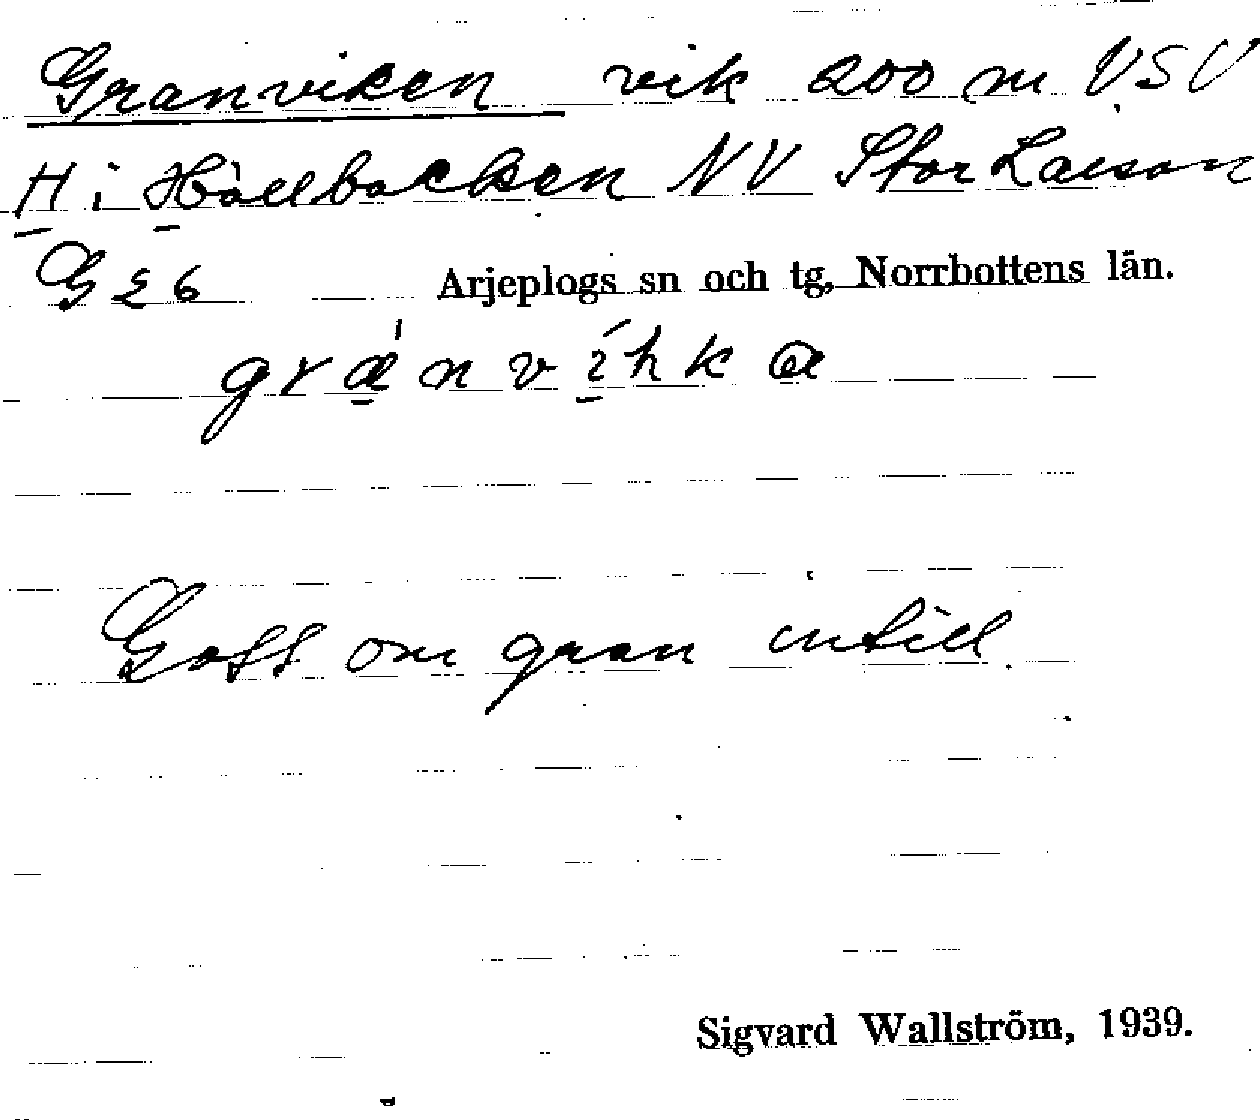 Granviken vik 200 m VSV
H i Hållbacken NV Stor Laisan
G 26 Arjeplogs sn och tg, Norrbottens län.
gránvíhka
Gott om gran intill.
Sigvard Wallström, 1939.